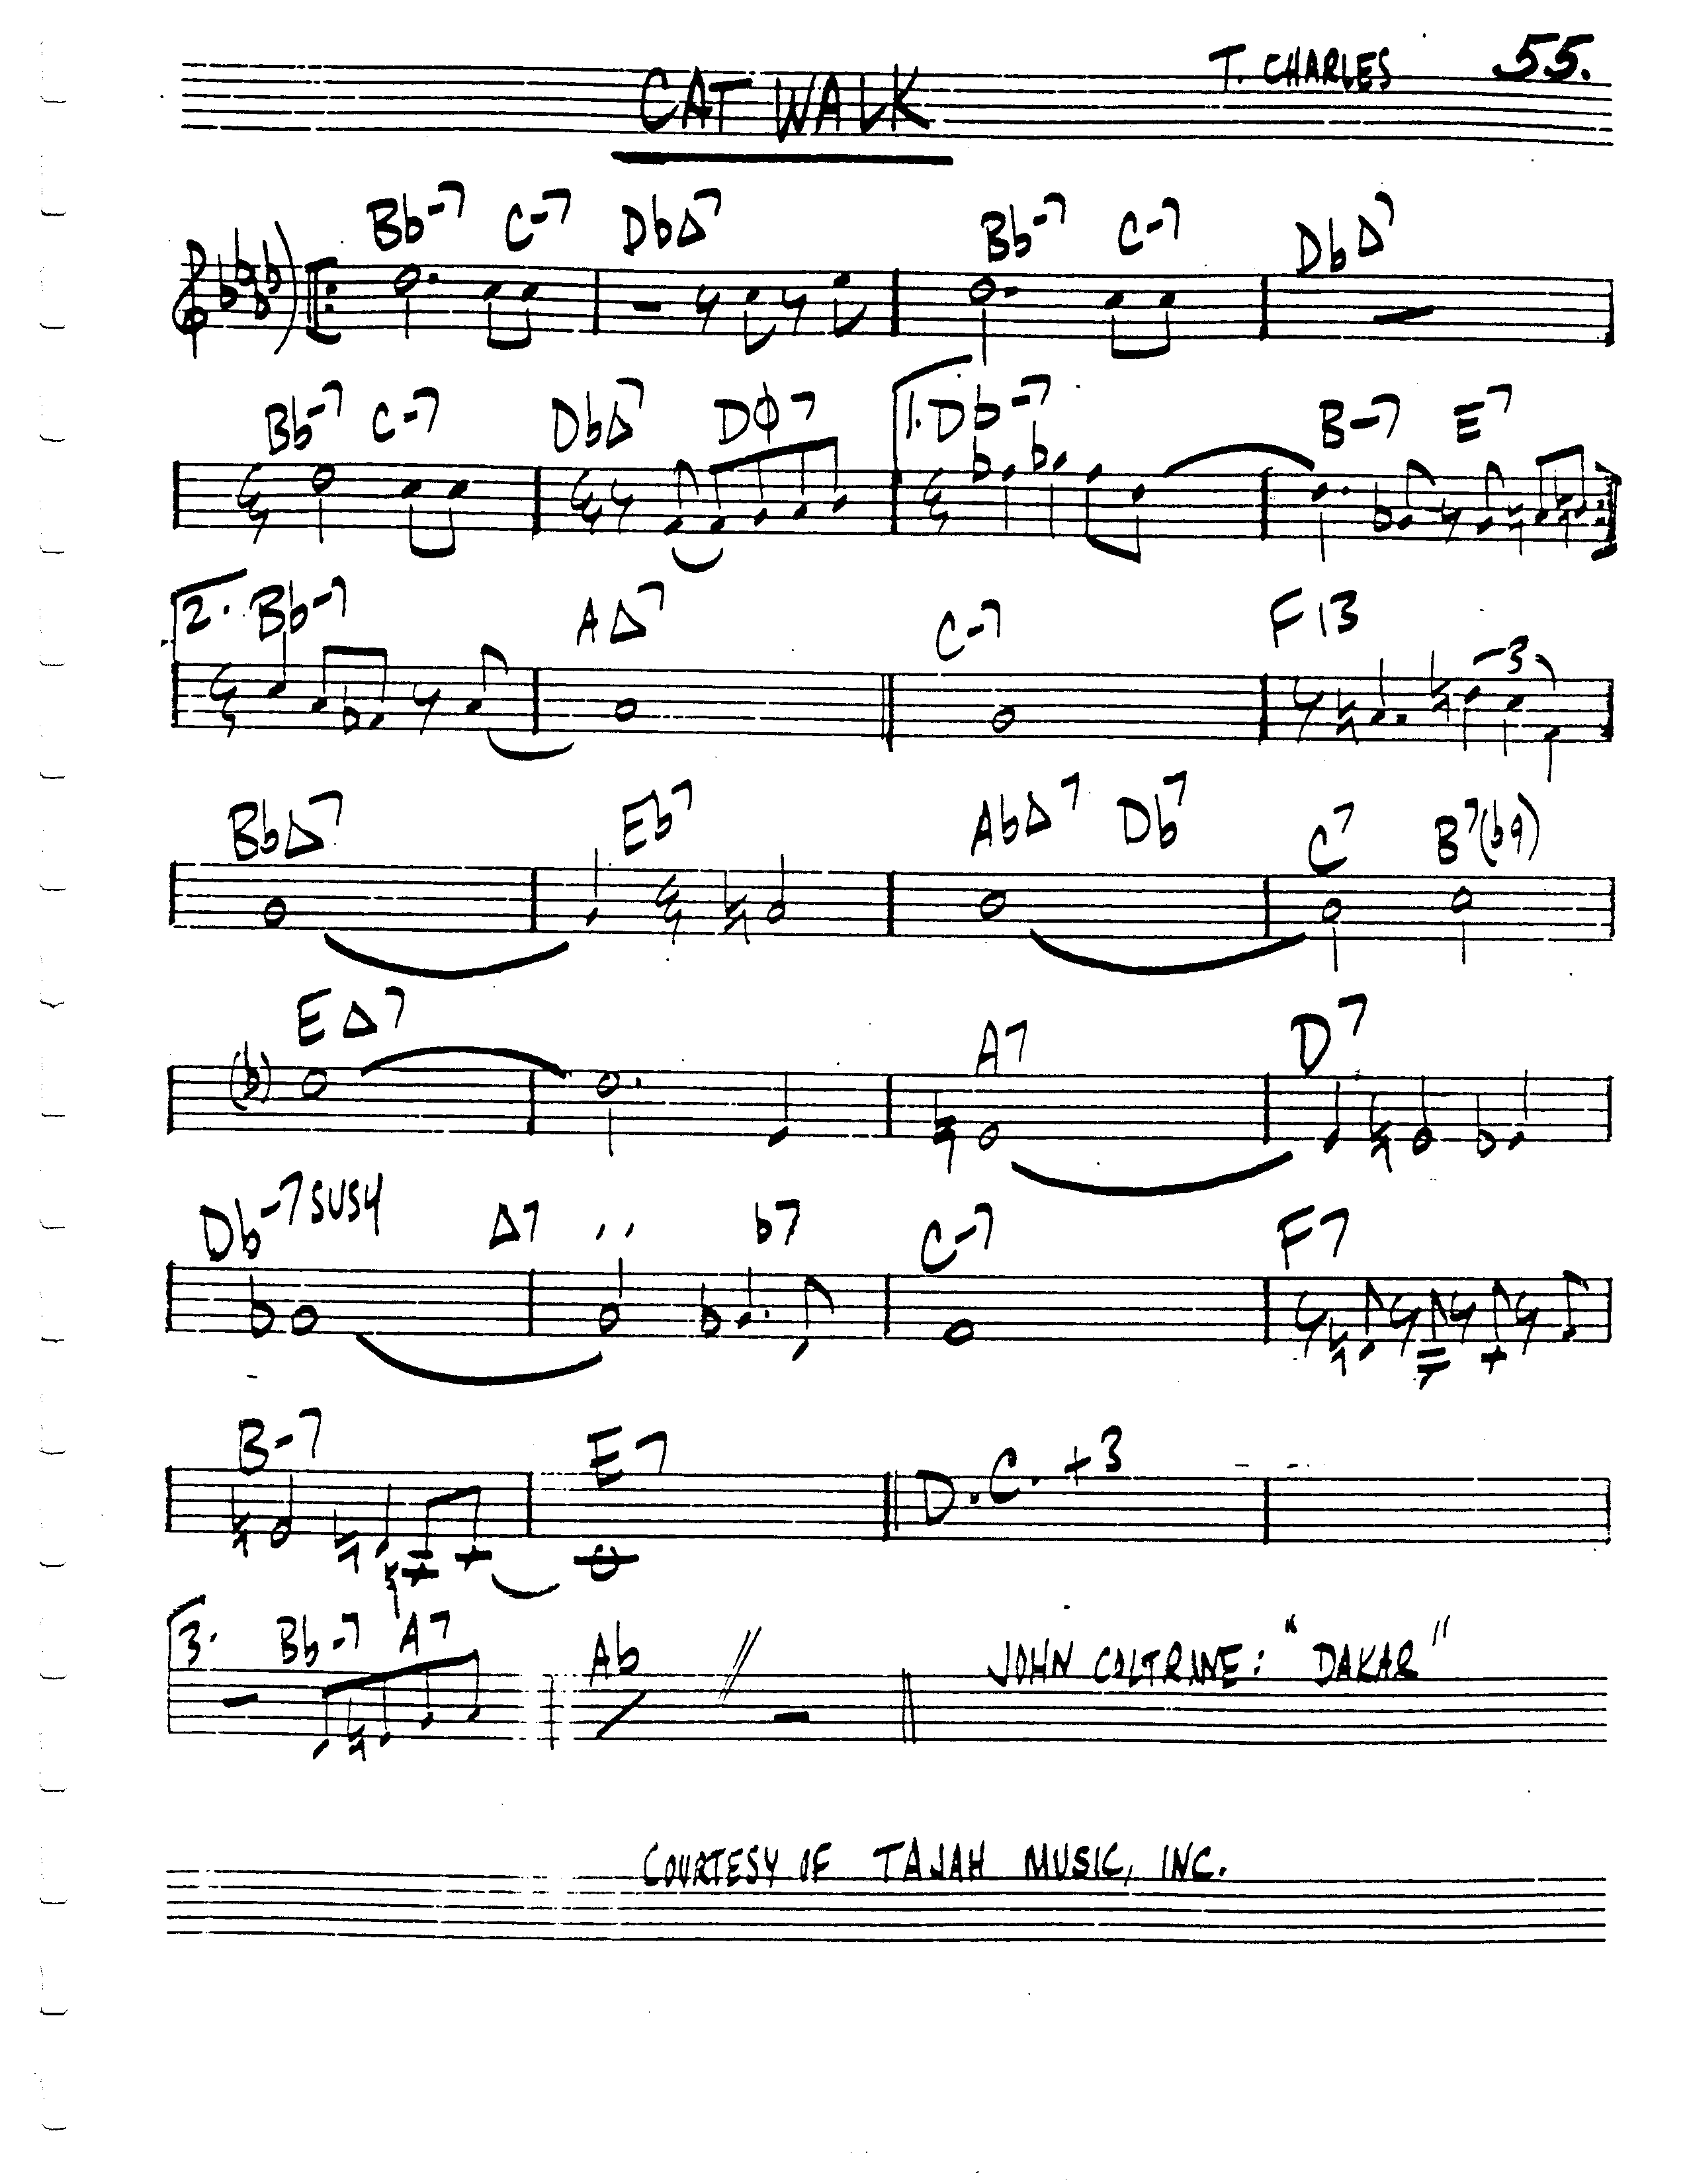 CAT WALK T. CHARLES 55.
Bb-7 C-7 DbΔ7 Bb-7 C-7 DbΔ7
Bb-7 C-7 DbΔ7 DΦ7 1. Db-7 B-7 E7
2. Bb-7 AΔ7 C-7 F13
3
BbΔ7 Eb7 AbΔ7 Db7 C7 B7(b9)
EΔ7 A7 D7
Db-7SUS4 Δ7 '' b7 C-7 F7
B-7 E7 D.C. +3
3. Bb-7 A7 Ab JOHN COLTRANE: "DAKAR"
COURTESY OF TAJAH MUSIC, INC.